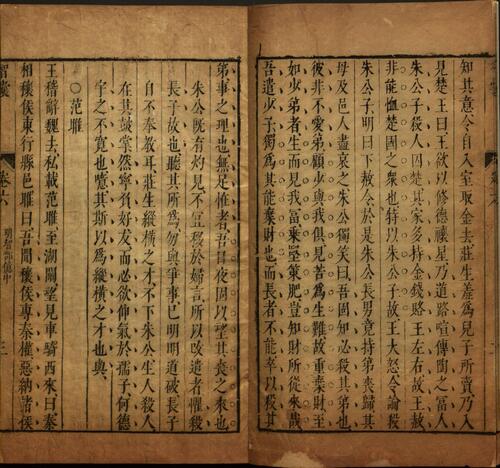 知其意令自入室取金去莊生羞爲兒子所賣乃入
見楚王曰王欲以修德禳星乃道路喧傳陶之富人
朱公子殺人囚楚其家多持金錢賂王左右故王赦
非能恤楚國之衆也特以朱公子故王大怒令論殺
朱公子明日下赦令於是朱公長男竟持弟喪歸其
母及邑人盡哀之朱公獨笑曰吾固知必殺其弟也
彼非不愛弟顧少與我俱見苦爲生難故重棄財至
如少弟者生而見我富乘堅策肥豈知財所從來哉
吾遣少子獨爲其能棄財也而長者不能卒以殺其
弟事之理也無足怪者吾日夜固以望其喪之來也
朱公既有灼見不宜移於婦言所以改遣者懼殺
長子故也聽其所爲勿與爭事已明明道破長子
自不奉敎耳莊生縱橫之才不下朱公生人殺人
在其鼓掌然寧負好友而必欲伸氣於孺子何德
宇之不寬也噫其斯以爲縱橫之才也與
○范雎
王稽辭魏去私載范雎至湖關望見車騎西來曰秦
相穰侯東行縣邑雎曰吾聞穰侯專秦權惡納諸侯
智囊
卷六
明智部億中
三